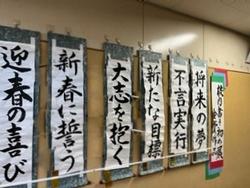 校内書き初め展
将来の夢
不言実行
新たな目標
大志を抱く
新春に誓う
迎春の喜び